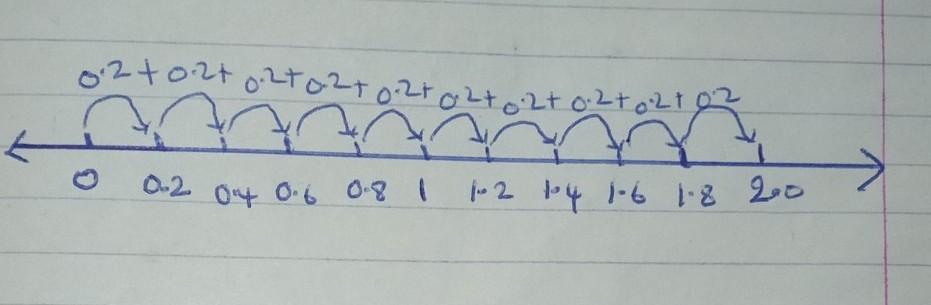 0.2 + 0.2 + 0.2 + 0.2 + 0.2 + 0.2 + 0.2 + 0.2 + 0.2 + 0.2
0 0.2 0.4 0.6 0.8 1 1.2 1.4 1.6 1.8 2.0